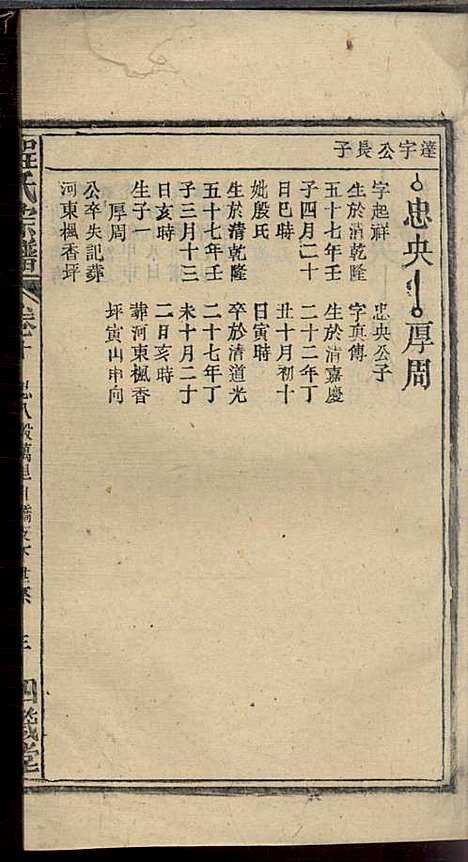 達字公長子
忠央
厚周
字起祥
生於清乾隆
五十七年壬
子四月二十
日巳時
妣殷氏
生於清乾隆
五十七年壬
子三月十三
日亥時
生子一
厚周
公卒失記葬
河東楓香坪
忠央公子
字貞傳
生於清嘉慶
二十二年丁
丑十月初十
日寅時
卒於清道光
二十七年丁
未十月二十
二日亥時
葬河東楓香
坪寅山申向
程氏宗譜
卷十
三
四箴堂